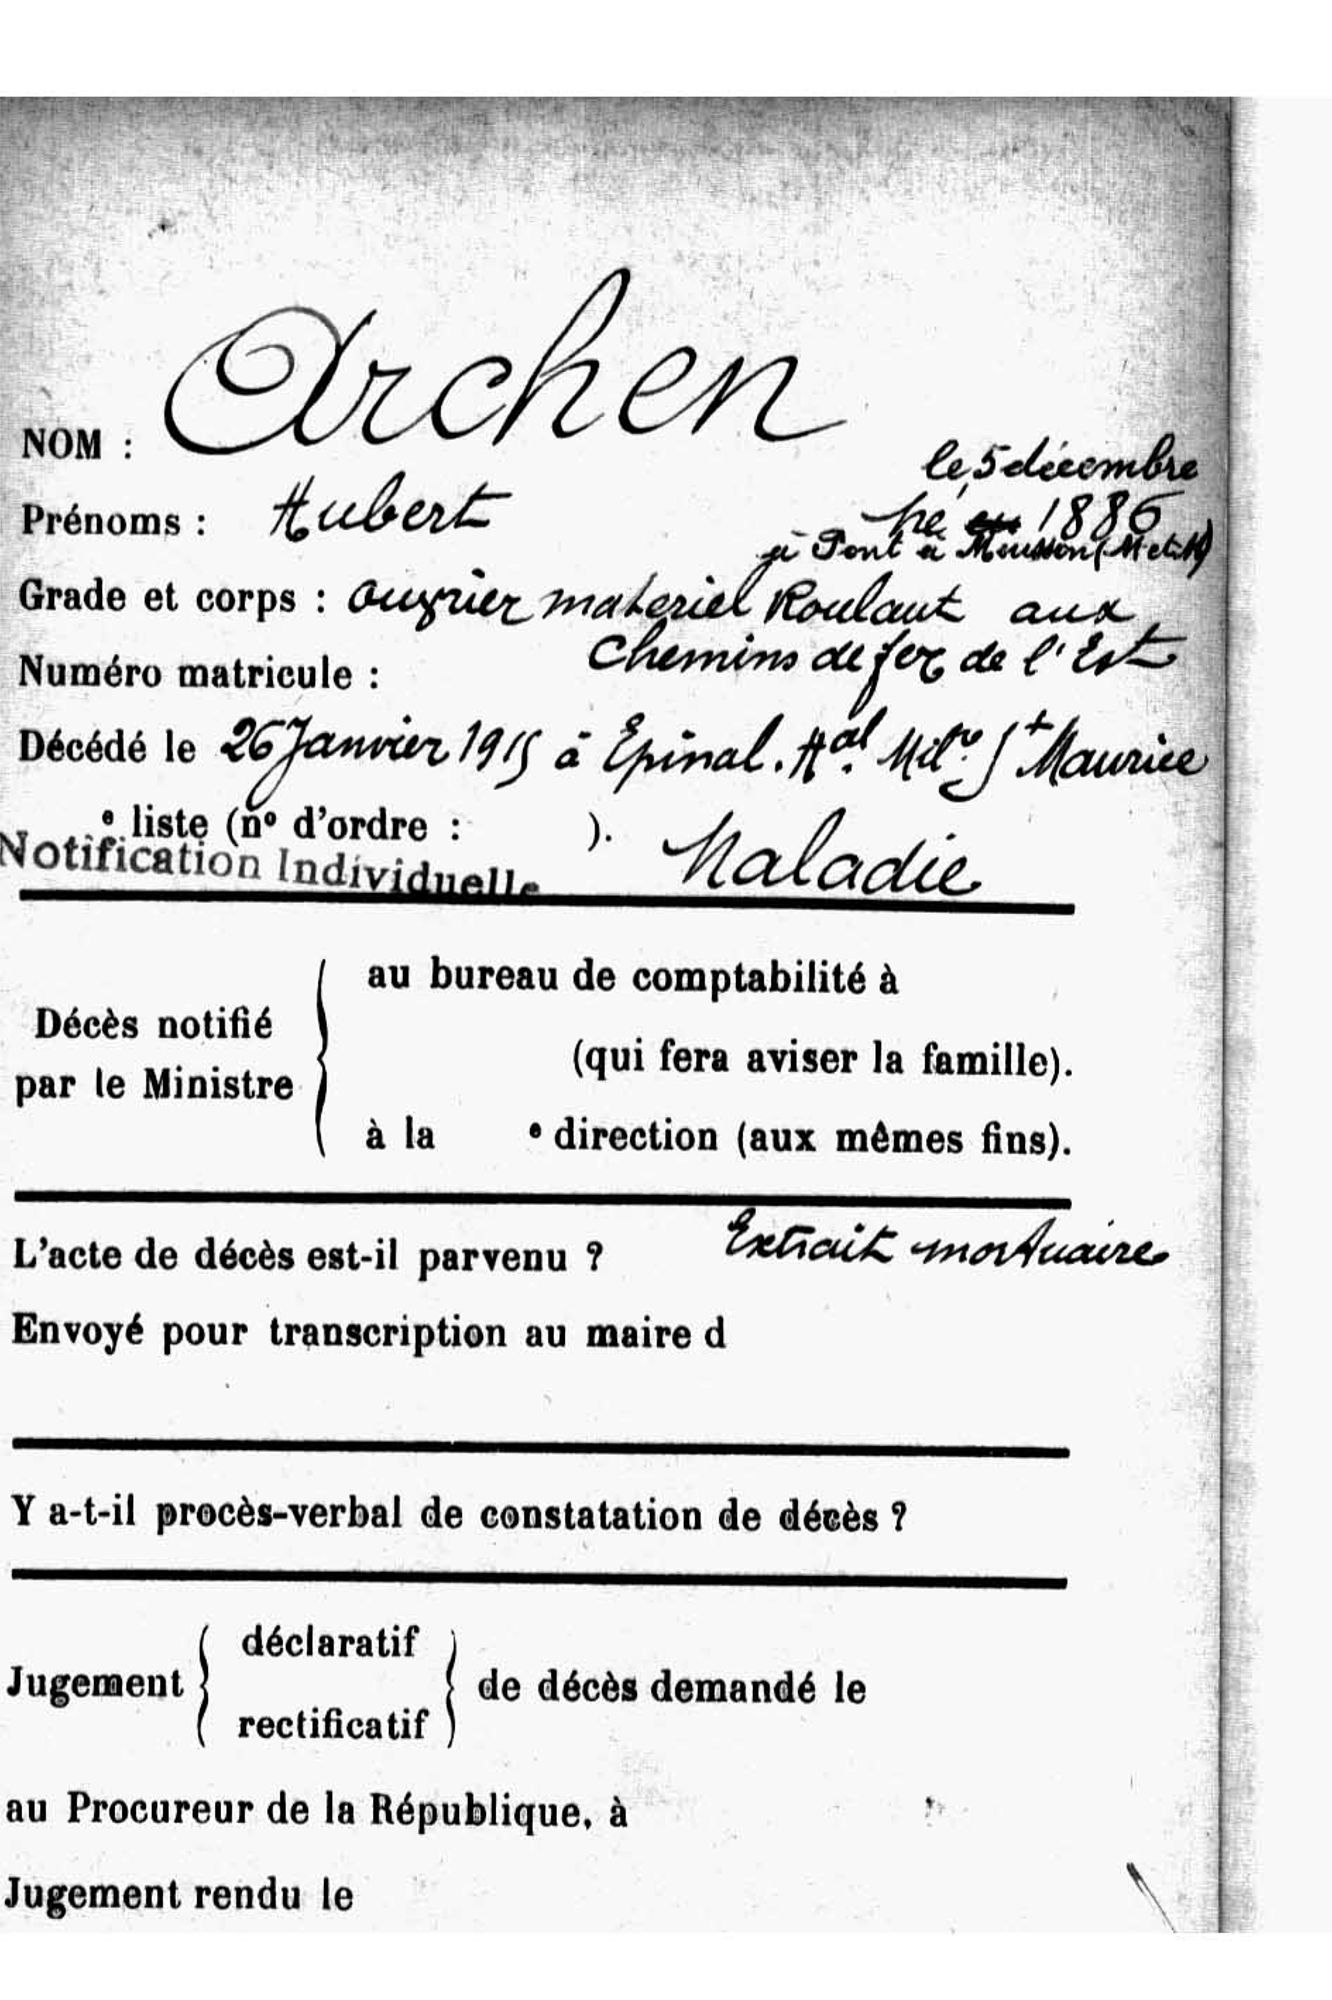 NOM : Archen
le 5 décembre
Prénoms : Hubert né en 1886
à Pont à Mousson (M et M)
Grade et corps : ouvrier materiel Roulant aux
Chemins de fer de l'Est
Numéro matricule :
Décédé le 26 Janvier 1915 à Epinal. Hal. Mitre St Maurice
e liste (no d'ordre : ).
Notification Individuelle Maladie
au bureau de comptabilité à
Décès notifié
(qui fera aviser la famille).
par le Ministre
à la e direction (aux mêmes fins).
L'acte de décès est-il parvenu ? Extrait mortuaire
Envoyé pour transcription au maire d
Y a-t-il procès-verbal de constatation de décès ?
déclaratif
Jugement de décès demandé le
rectificatif
au Procureur de la République, à
Jugement rendu le